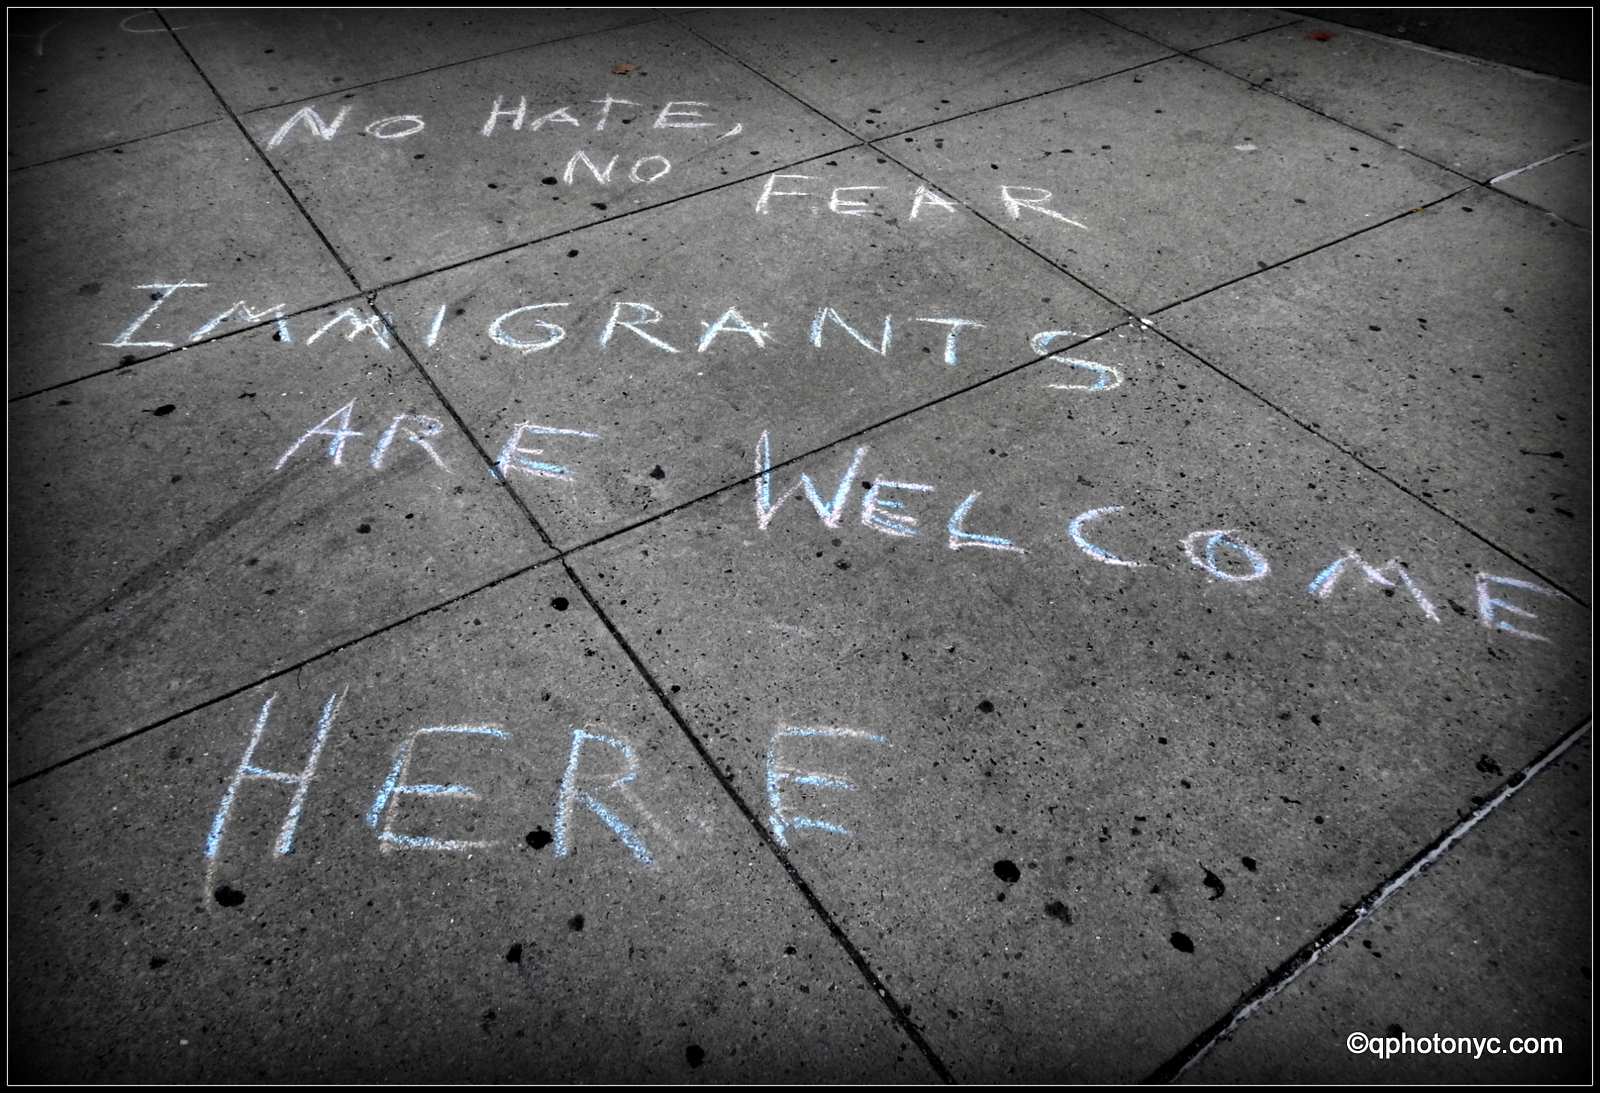 NO HATE,
NO FEAR
IMMIGRANTS
ARE WELCOME
HERE
©qphotonyc.com